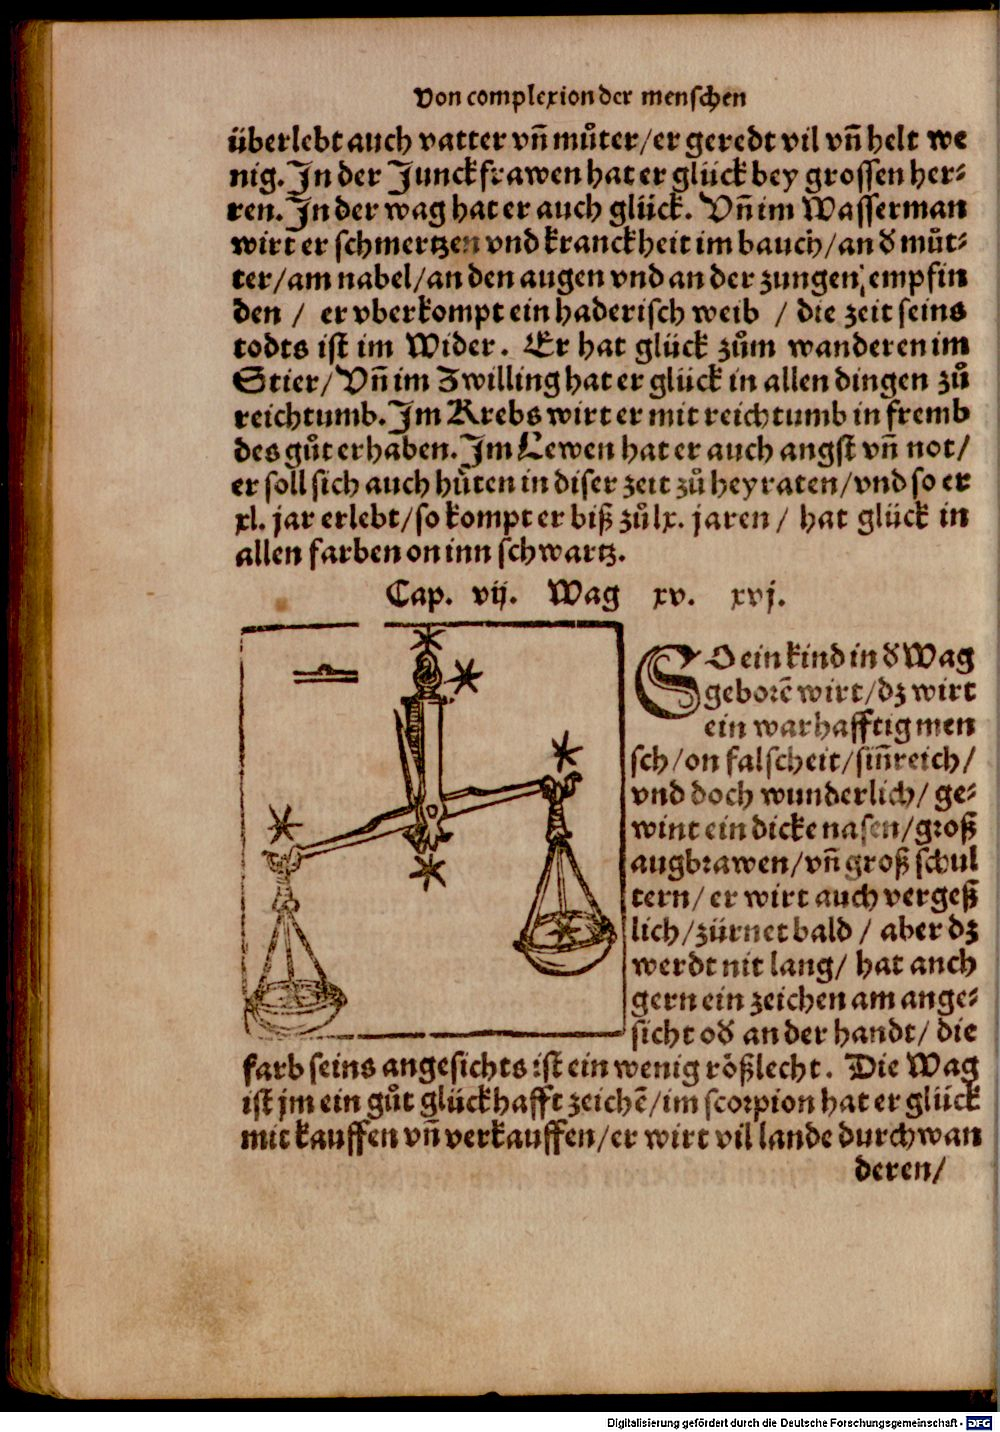 Von complexion der menschen
überlebt auch vatter vñ můter/er geredt vil vñ helt we
nig. In der Junckfrawen hat er glück bey grossen her⸗
ren. In der wag hat er auch glück. Vñ im Wasserman
wirt er schmertzen vnd kranckheit im bauch/an d̕ můt⸗
ter/am nabel/an den augen vnd an der zungen, empfin
den / er vberkompt ein haderisch weib / die zeit seins
todts ist im Wider. Er hat glück zům wanderen im
Stier/Vñ im Zwilling hat er glück in allen dingen zů
reichtumb. Im Krebs wirt er mit reichtumb in fremb
des gůt erhaben. Im Lewen hat er auch angst vñ not/
er soll sich auch hůten in diser zeit zů heyraten/vnd so er
xl. jar erlebt/so kompt er biß zů lx. jaren / hat glück in
allen farben on inn schwartz.
Cap. vij. Wag xv. xvj.
SO ein kind in d̕ Wag
geborē wirt/dz wirt
ein warhafftig men
sch/on falscheit/siñreich/
vnd doch wunderlich/ ge⸗
wint ein dicke nasen/groß
augbrawen/vñ groß schul
tern/ er wirt auch vergeß
lich/zürnet bald / aber dz
werdt nit lang/ hat auch
gern ein zeichen am ange⸗
sicht od̕ an der handt/ die
farb seins angesichts ist ein wenig rößlecht. Die Wag
ist jm ein gůt glückhafft zeichē/im scorpion hat er glück
mit kauffen vñ verkauffen/er wirt vil lande durchwan
deren/
Digitalisierung gefördert durch die Deutsche Forschungsgemeinschaft - DFG